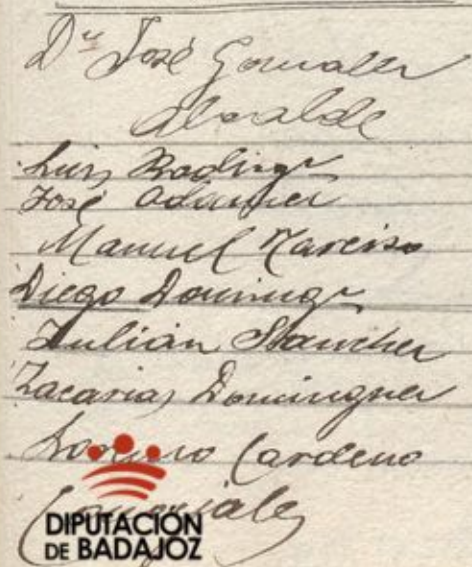 Dn José Gonzalez
Alcalde
Luis Rodrigz
José Adamez
Manuel Narciso
Diego Domingz
Julián Sanchez
Zacarias Dominguez
Lorenzo Cardeno
Concejales
DIPUTACIÓN
DE BADAJOZ